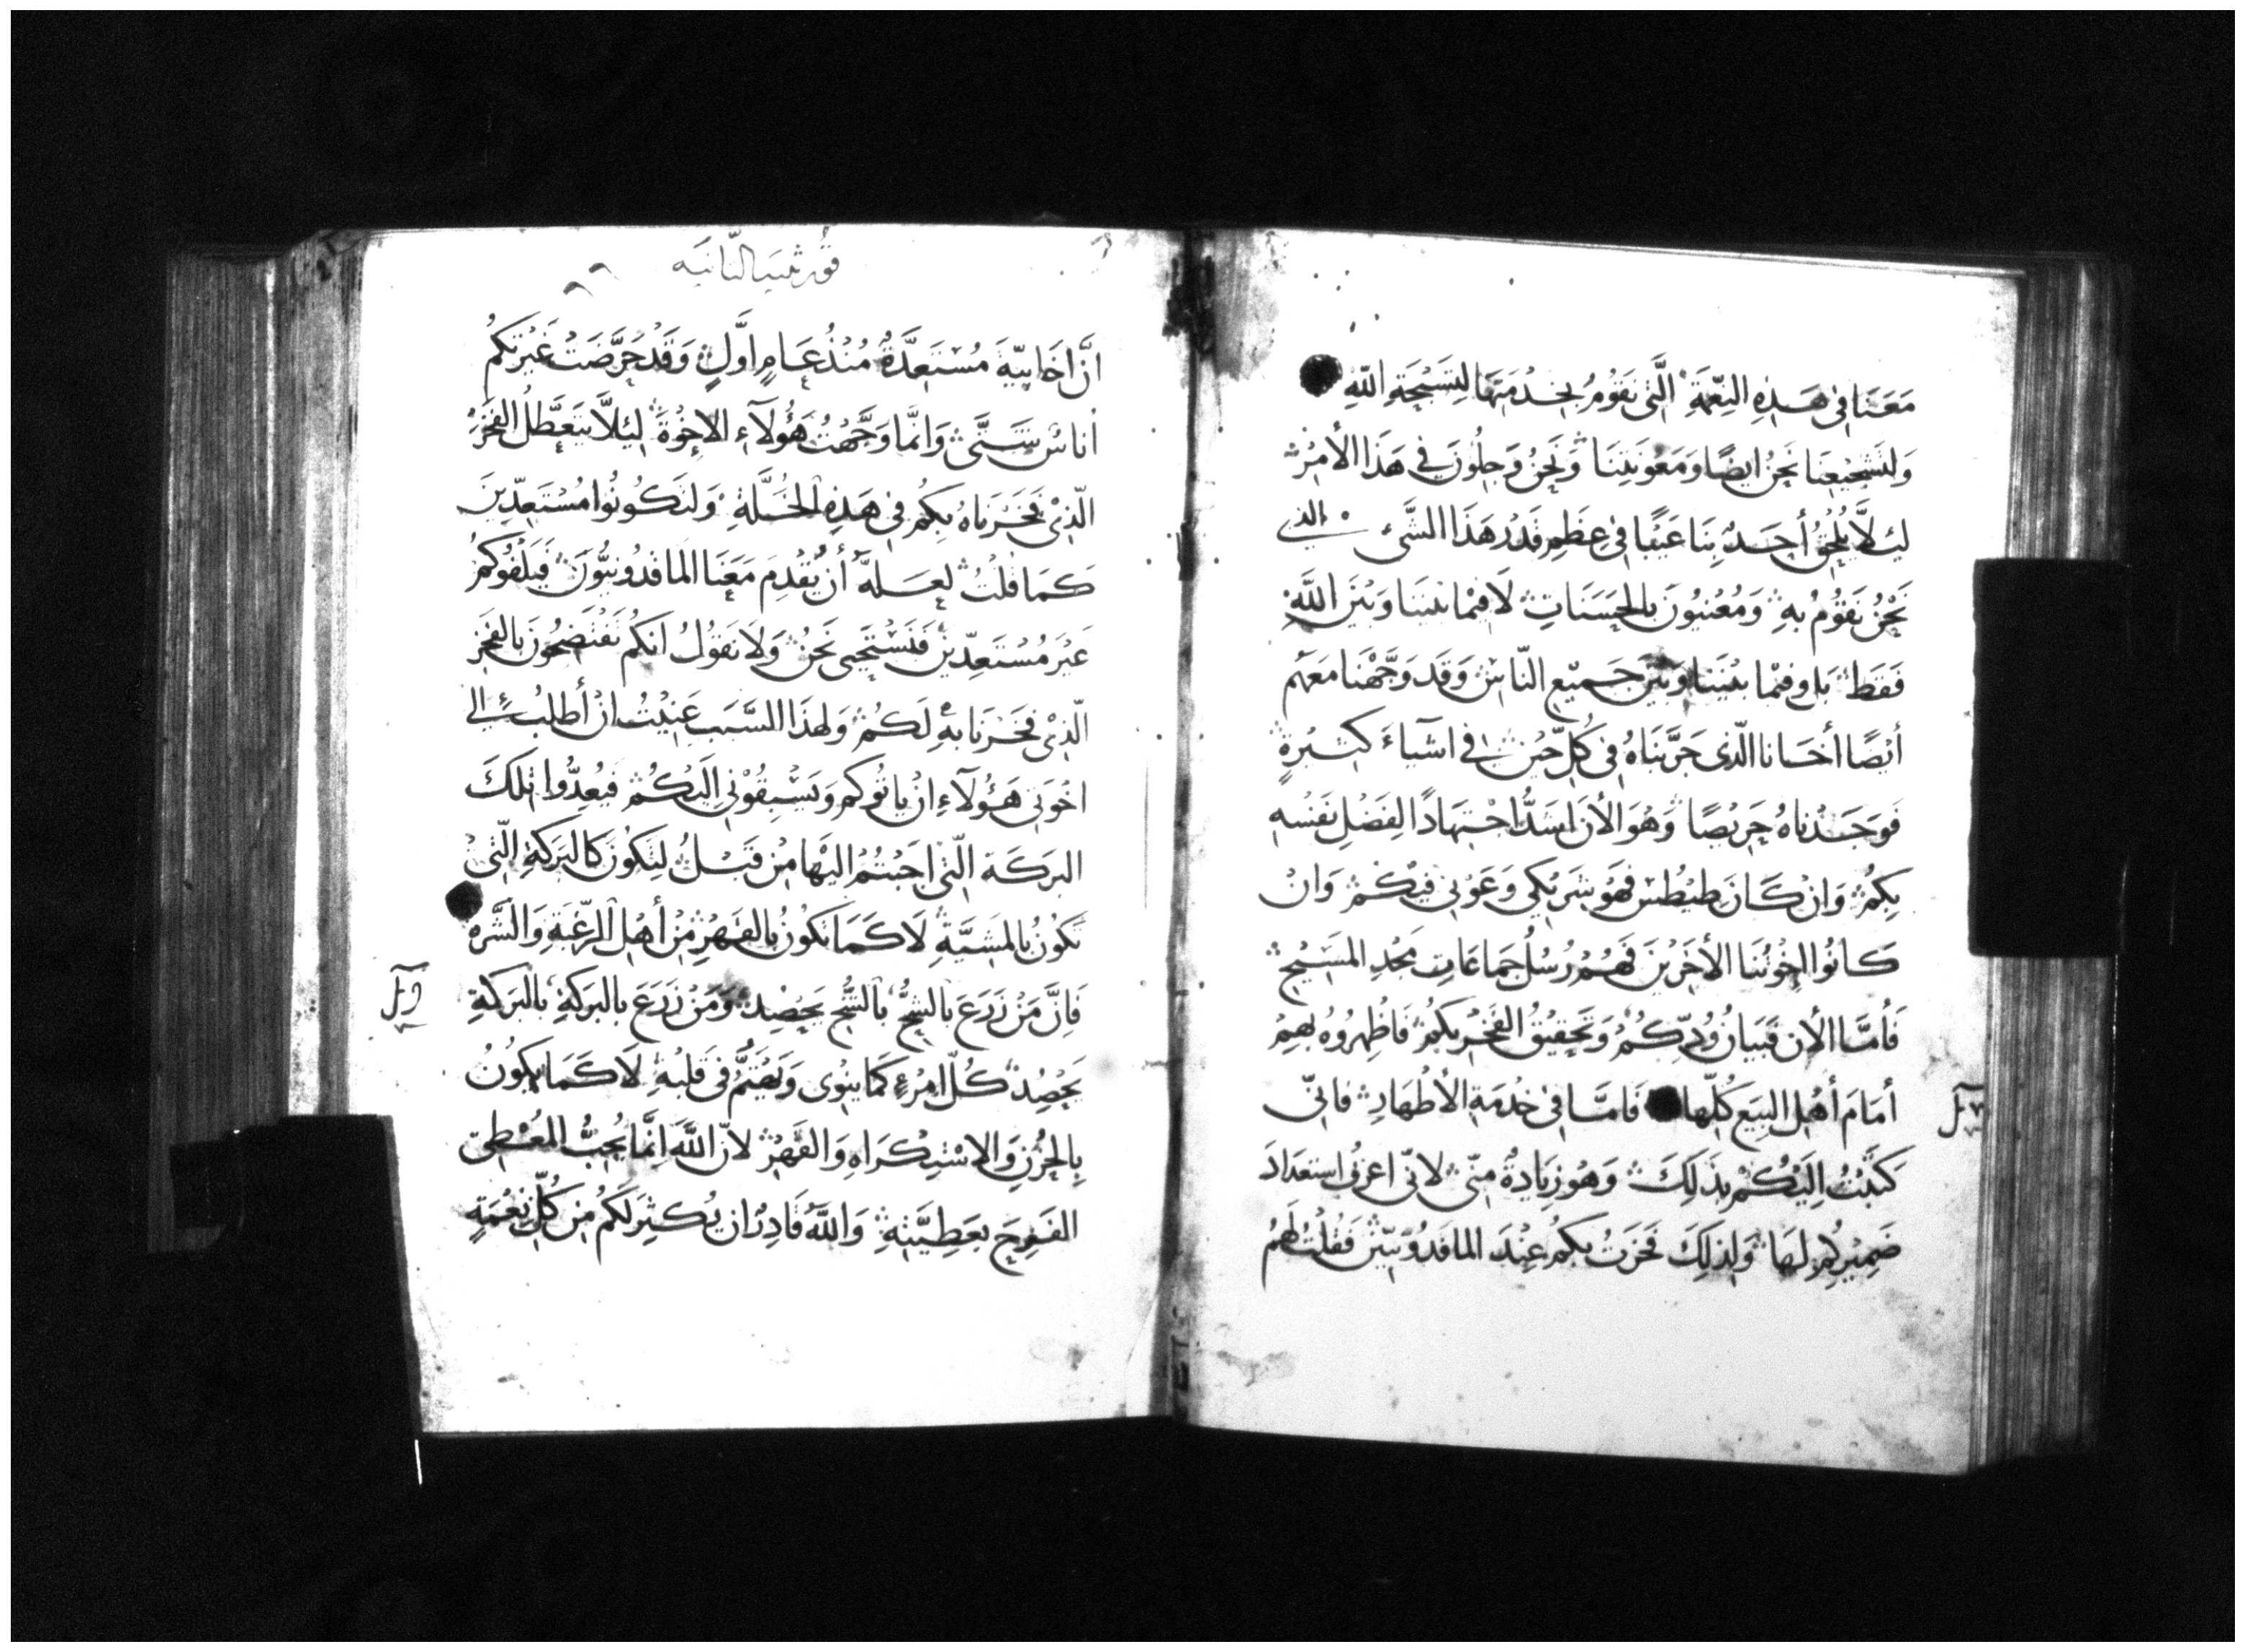 مَعَنَا فِي هَذِهِ النِّعْمَةِ الَّتِي نَقُومُ بِخِدْمَتِهَا لِتَسْبِحَةِ اللهِ
وَلِتَشْجِيعِنَا نَحْنُ ايضًا وَمَعُونَتِنَا وَنَحْنُ وَجِلُونَ فِي هَذَا الأَمْرِ
لِيَلَّا يُلْحِقُ أَحَدٌ بِنَا عَيْبًا فِي عِظَمِ قَدْرِ هَذَا الشَّيْ الذي
نَحْنُ نَقُومُ بِهِ وَمُعْنِيُونَ بِالحَسَنَاتِ لَا فِيمَا بَيْنَنَا وَبَيْنَ اللَّهِ
فَقَطْ بَل وفِيمَا بَيْنَنَا وَبَيْنَ جَمِيْعِ النَّاسِ وَقَد وَجَّهْنَا مَعَهُم
أَيْضًا أخَانا الَّذِي جَرَّبْنَاهُ فِي كُلِّ حِيْنٍ فِي اشياءَ كَثِيْرَةٍ
فَوَجَدْنَاهُ حَرِيْصًا وَهُوَ الأَن اشَدُّ اجْتِهَادًا لِفَضْلِ نَفْسِهِ
بِكُمْ وَانْ كَانَ طِيْطُسْ فَهُوَ شَرِيْكِي وَعَوْنِي فِيْكُمْ وَانْ
كَانُوا اخِوْتُنَا الأخَرِيْنَ فَهُمْ رُسُلُ جَمَاعَاتِ مَجْدِ المَسِيْحِ
فَأمَّا الأَن فَبَيَانُ وُدِّكُمْ وَتَحْقِيْقُ الفَخْرِ بِكُمْ فَاظْهِرُوهُ لَهُمْ
أمَامَ أَهْلِ البِيَعِ كُلِّهَا فَامَّا فِي خِدْمَةِ الأَطْهَارِ فانِّي
كَتَبْتُ الَيْكُمْ بِذَلِكَ وَهُوَ زِيَادَةٌ مِنِّي لانِّي اعْرِفُ استِعْدَادَ
ضَمِيْرِكُم لَهَا وَلِذَلِكَ فَخَرتُ بِكُم عِنْدَ المَاقَدُوْنِيّيْنَ فَقُلْتُ لَهُمْ
قورنثيه الثانيه
انَّ اخَائِيَّةَ مُسْتَعِدَّةٌ مُنْذُ عَامٍ اَوَّلٍ وَقَدْ حَرَّضَتْ غَيْرَتُكُمْ
اناسٌ شَتَّى وَانَّمَا وَجَّهْتُ هَؤُلَآءِ الاخِوَةَ لِيَلَّا يَتَعَطَّلُ الفَخْرُ
الَّذِيْ فَخَرْنَاهُ بِكُمْ فِي هَذِهِ الخُلَّةِ وَلتَكُونُوا مُسْتَعِدِّينَ
كَمَا قُلْتُ لَعَلَّهُ أَن يُقْدِمَ مَعَنَا المَاقَدُونِيُّونَ فَيَلْفُوكُمْ
غَيْرَ مُسْتَعِدِّينَ فَنَسْتَحْيِي نَحْنُ وَلَا نَقُولُ انَّكُم تَفْتَضِحُونَ بِالفَخْرِ
الَّذِيْ فَخَرْنَا بِهِ لَكُمْ وَلِهَذَا السَّبَبِ عُنِيْتُ انْ أَطلُبُ الي
اخْوَتِي هَؤُلَآءِ انْ يَاتُوكُم وَيَسْبِقُوْنِي الَيْكُمْ فَيُعِدُّوا تِلكَ
البَرَكَةَ الَّتِي اجَبْتُمْ الَيْهَا مِنْ قَبْلُ لِتَكُونَ كَالبَرَكَةِ الَّتِيْ
تَكُونُ بِالمَشِيَّةِ لَا كَمَا تَكُوْنُ بِالقَهْرِ مِنْ أَهْلِ الرَّغْبَةِ وَالشَّرَهِ
فَانَّ مَنْ زَرَعَ بِالشِّحُّ بِالشُّحِّ يَحْصِدُ وَمَنْ زَرَعَ بِالبَرَكَةِ بِالبَرَكَةِ
يَحْصِدُ كُلُّ امْرِءٍ كَمَا يَنْوِي وَيَهْتَمُّ فِي قَلبِهِ لَا كَمَا يَكُونُ
بِالحُزْنِ وَالاسْتِكْرَاهِ وَالقَهْرِ لانَّ اللَّهَ انَّمَا يُحِبُّ المُعْطِيَ
الفَرِحَ بِعَطِيَّتِهِ وَاللهُ قَادِرٌ ان يُكْثِرَ لَكُم مِنْ كُلِّ نِعْمَةٍ